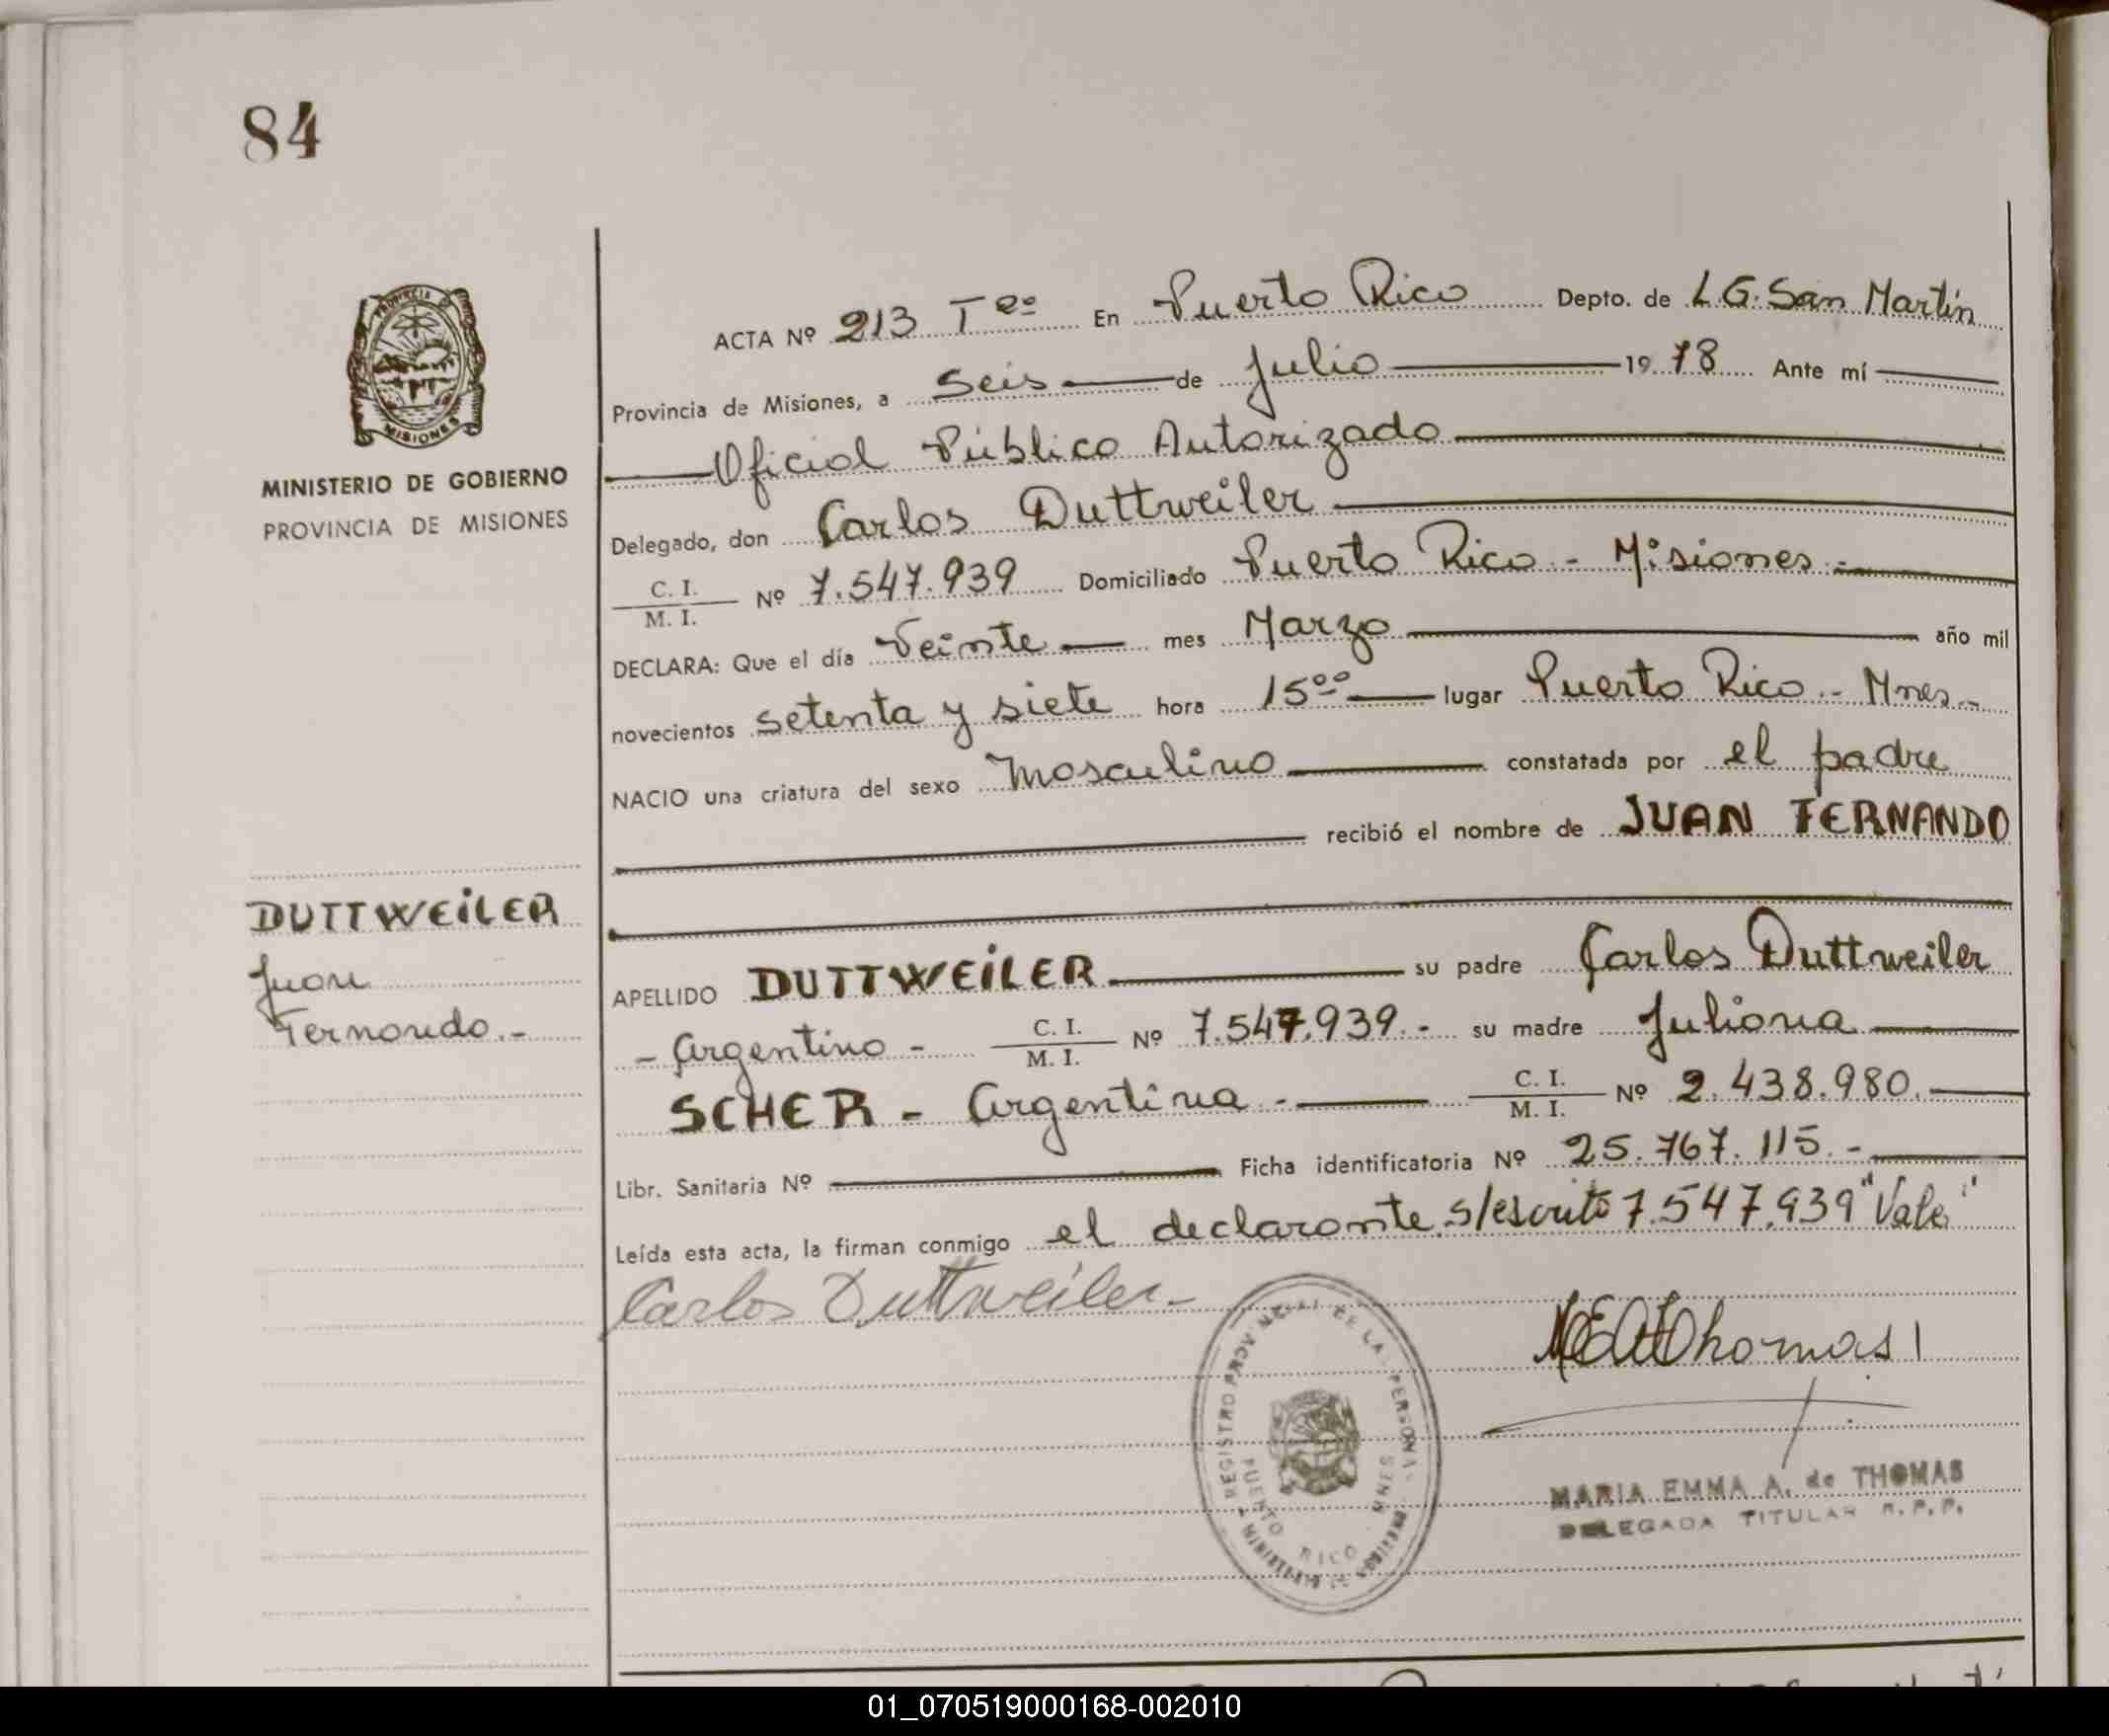 84
PROVINCIA D
MISIONES
MINISTERIO DE GOBIERNO
PROVINCIA DE MISIONES
ACTA Nº 213 Tºº En Puerto Rico Depto. de L.G. San Martín
Provincia de Misiones, a Seis de Julio 1978 Ante mí
Oficial Público Autorizado
Delegado, don Carlos Duttweiler
C. I.
M. I. Nº 7.547.939 Domiciliado Puerto Rico - Misiones -
DECLARA: Que el día Veinte mes Marzo año mil
novecientos setenta y siete hora 15ºº lugar Puerto Rico.- Mnes.-
NACIO una criatura del sexo Masculino constatada por el padre
recibió el nombre de JUAN FERNANDO
DUTTWEILER
Juan
Fernando.-
APELLIDO DUTTWEILER su padre Carlos Duttweiler
- Argentino - C. I.
M. I. Nº 7.547.939.- su madre Juliana
SCHER - Argentina - C. I.
M. I. Nº 2.438.980.
Libr. Sanitaria Nº Ficha identificatoria Nº 25.767.115.-
Leída esta acta, la firman conmigo el declarante. s/escrito 7.547.939 "Vale"
Carlos Duttweiler-
REGISTRO PROVINCIAL DE LA PERSONA
PUERTO RICO MNES
MARIA EMMA A. de THOMAS
DELEGADA TITULAR R.P.P.
01_070519000168-002010